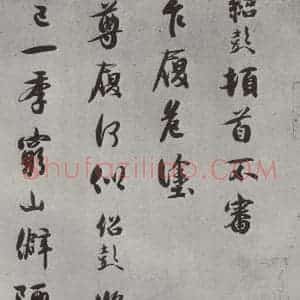 紹彭頓首不審
乍履危塗
尊履何似紹彭
已一季窮山僻陋
shufaziliao.COM